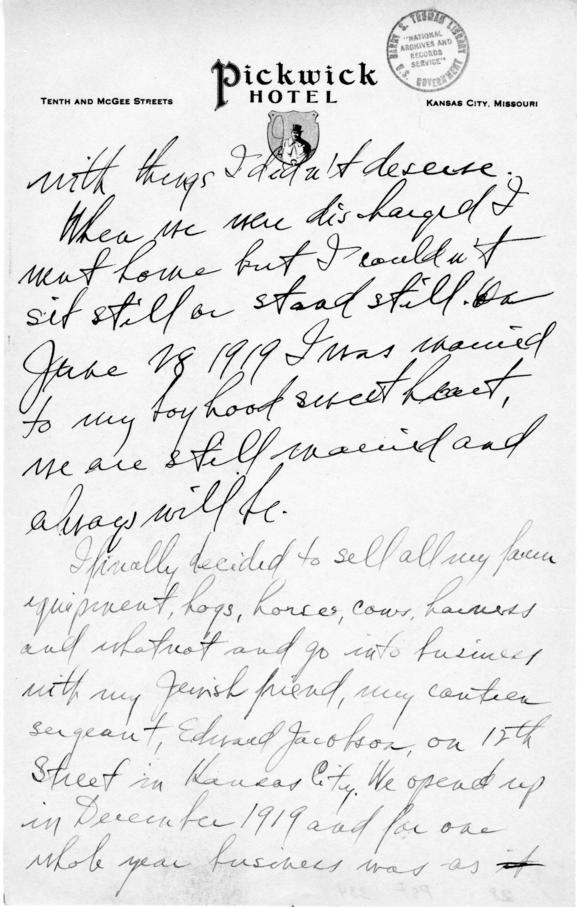 HARRY S. TRUMAN LIBRARY
"NATIONAL
ARCHIVES AND
RECORDS
SERVICE"
U.S. GOVERNMENT
Pickwick
HOTEL
TENTH AND MCGEE STREETS
KANSAS CITY, MISSOURI
with things I didn't deserve.
When we were discharged I
went home but I couldn't
sit still or stand still. On
June 28 1919 I was married
to my boyhood sweetheart,
we are still married and
always will be.
I finally decided to sell all my farm
equipment, hogs, horses, cows, harness
and whatnot and go into business
with my Jewish friend, my canteen
sergeant, Edward Jacobson, on 12th
Street in Kansas City. We opened up
in December 1919 and for one
whole year business was as it